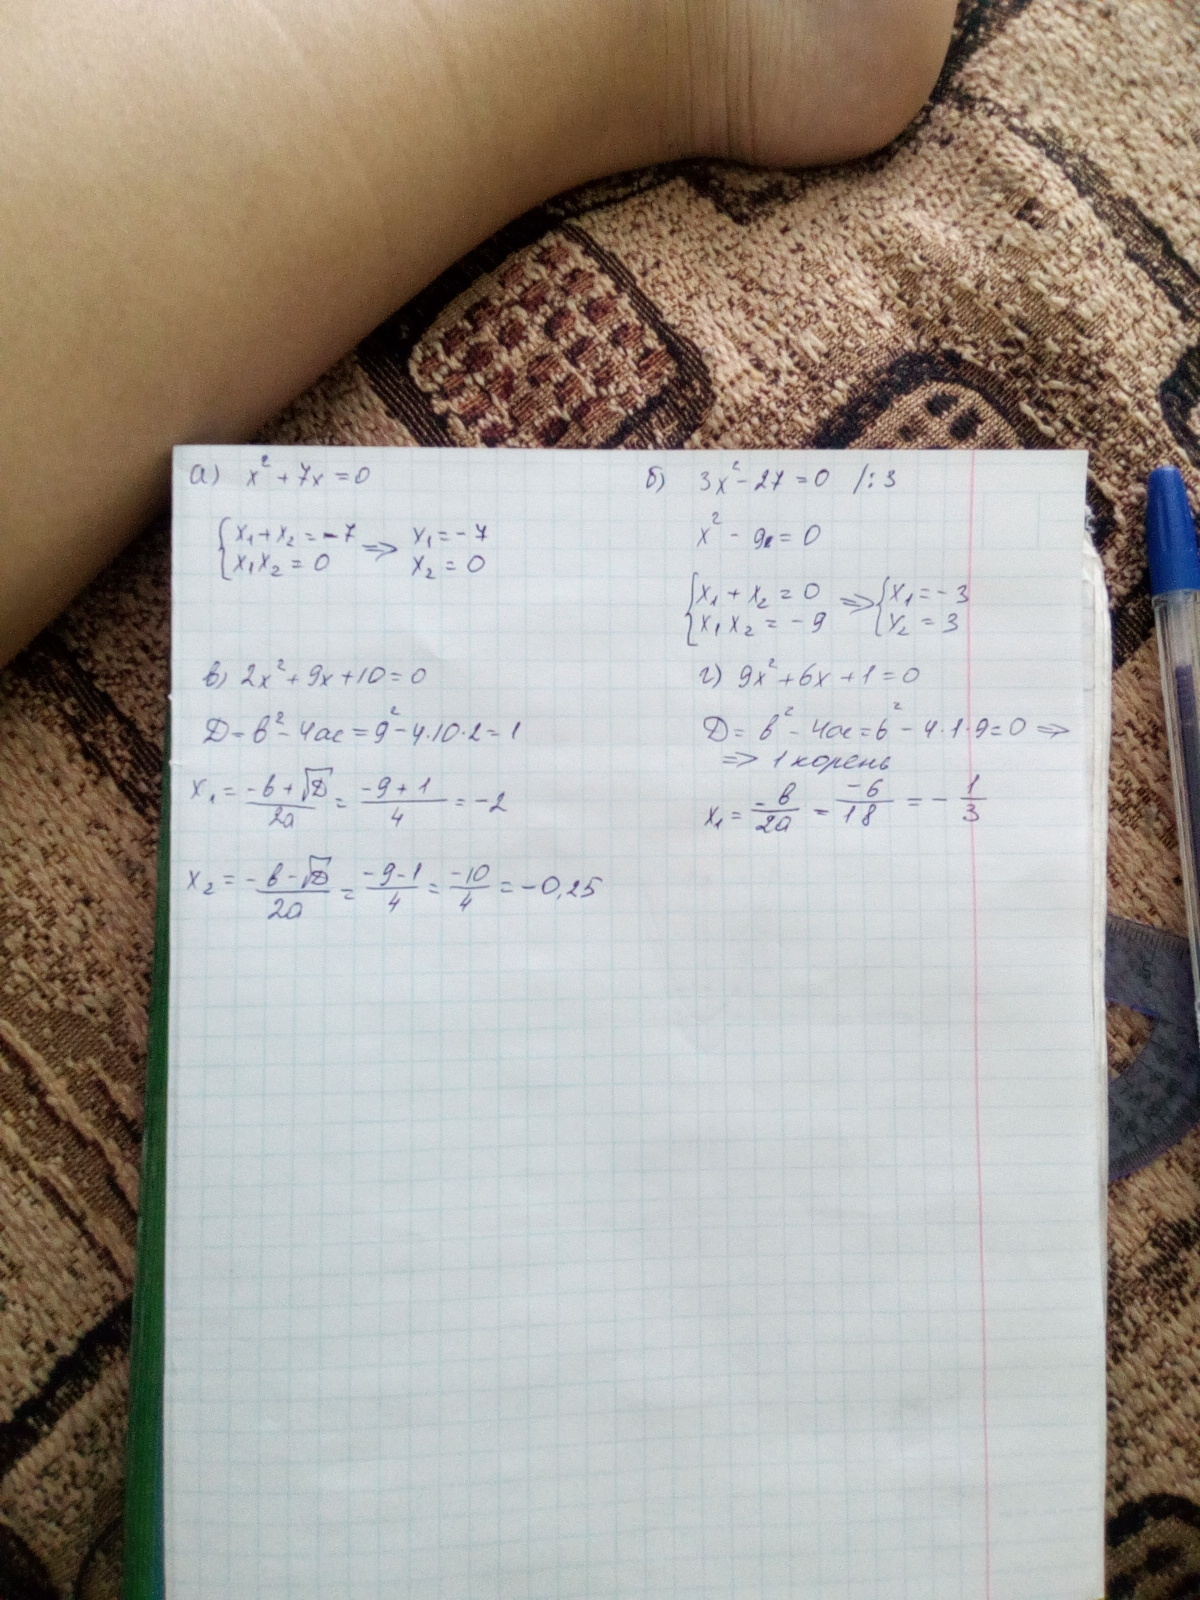 а) x² + 7x = 0
{x₁ + x₂ = -7 => x₁ = -7
x₁x₂ = 0 x₂ = 0
б) 3x² - 27 = 0 /: 3
x² - 9 = 0
{x₁ + x₂ = 0 => {x₁ = -3
x₁x₂ = -9 x₂ = 3
в) 2x² + 9x + 10 = 0
D = b² - 4ac = 9² - 4·10·2 = 1
x₁ = (-b + √D)/2a = (-9 + 1)/4 = -2
x₂ = (-b - √D)/2a = (-9 - 1)/4 = -10/4 = -0,25
г) 9x² + 6x + 1 = 0
D = b² - 4ac = 6² - 4·1·9 = 0 =>
=> 1 корень
x₁ = -b/2a = -6/18 = -1/3